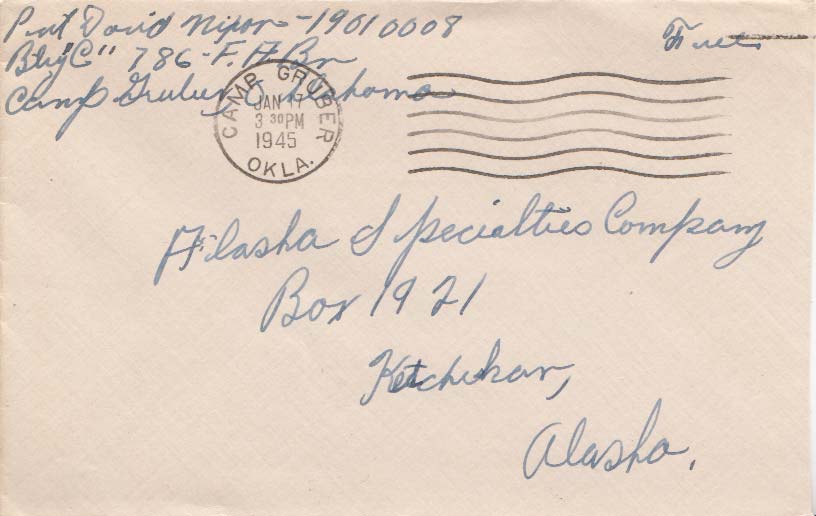 Pvt David Nixon - 19010008
Free
Btry "C" 786 - F. A. Bn
Camp Gruber, Oklahoma
CAMP GRUBER
JAN 17
3 30 PM
1945
OKLA.
Alaska Specialties Company
Box 1921
Ketchikan,
Alaska.